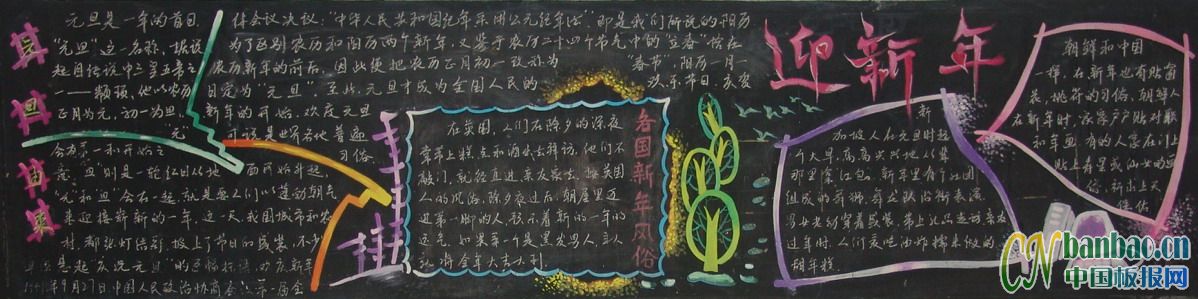 元旦由来
元旦是一年的首日,
"元旦"这一名称,据说
起自传说中三皇五帝之
一——颛顼,他以农历
正月为元,初一为旦。
体会议决议:"中华人民共和国纪年采用公元纪年法",即是我们所说的阳历
为了区别农历和阳历两个新年,又鉴于农历二十四个节气中的"立春"恰在
农历新年的前后,因此便把农历正月初一改称为"春节",阳历一月一
日定为"元旦"至此,元旦才成为全国人民的欢乐节日
新年的开始,欢度元旦
可说是世界各地普遍
习俗
意"旦"则是一轮红日从地面冉冉升起
元和旦"合在一起,就是要人们以蓬勃朝气
来迎接崭新的一年。这一天,我国城市和农
村,都张灯结彩,披上了节日的盛装,不少
1949年9月27日中国人民政治协商会议第一届全
各国新年风俗
在英国,人们在除夕的深夜
常带上糕点和酒出去拜访,他们不
敲门,就径直进亲友家去。按英国
人的风俗,除夕夜过后,朝屋里迈
进第一脚的人,预示着新的一年的
运气。如果第一个是黑发男人
迎新年
新
加坡人在元旦时起
个大早,高高兴兴地从长
那里拿红包。新年里有人们
组成的狮
男女老幼穿着盛装,带上礼品走访亲友
过年时,人们爱吃油炸糯米做的
甜年糕。
朝鲜和中国
一样,在新年也有贴窗
花、桃符的习俗。朝鲜人
在新年时,家家户户贴对联
和年画,有的人家在门上
贴上寿星或仙女的画
CN banbao.cn
中国板报网